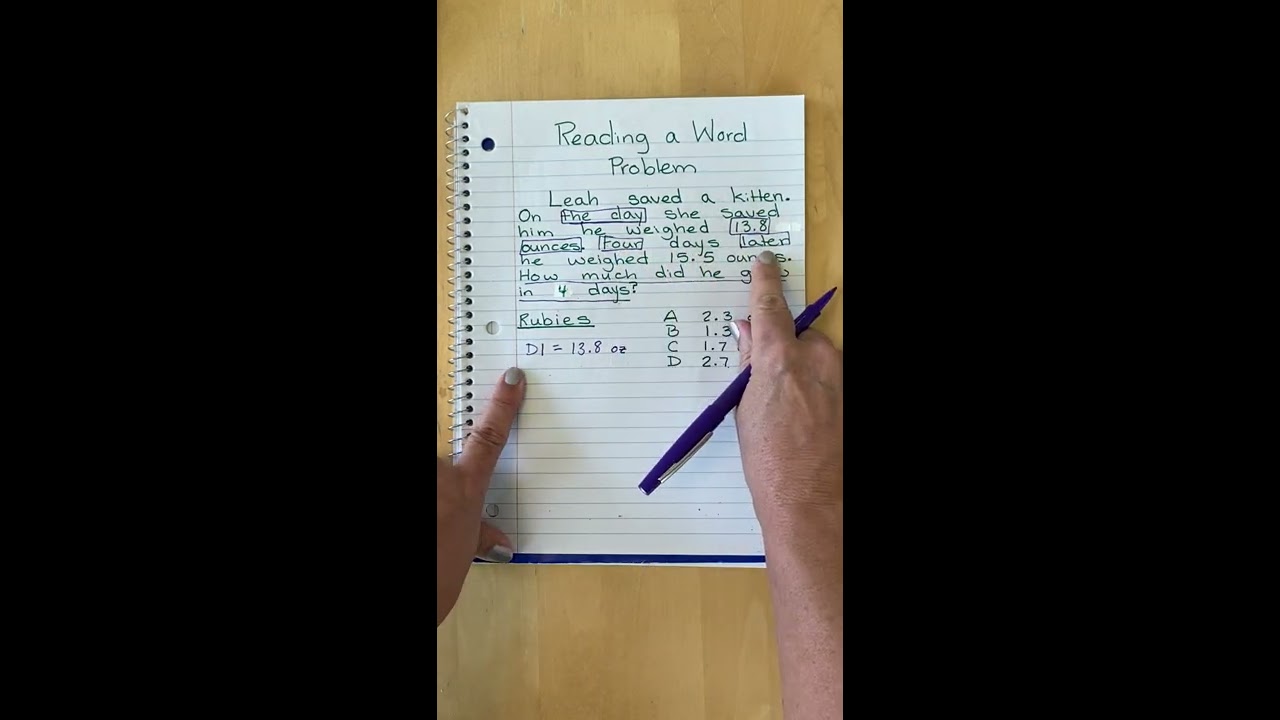 Reading a Word
Problem
Leah saved a kitten.
On the day she saved
him he weighed 13.8
ounces. Four days later
he weighed 15.5
How much did he
in 4 days?
Rubies
A 2.3
B 1.3
C 1.7
D 2.7
D1 = 13.8 oz